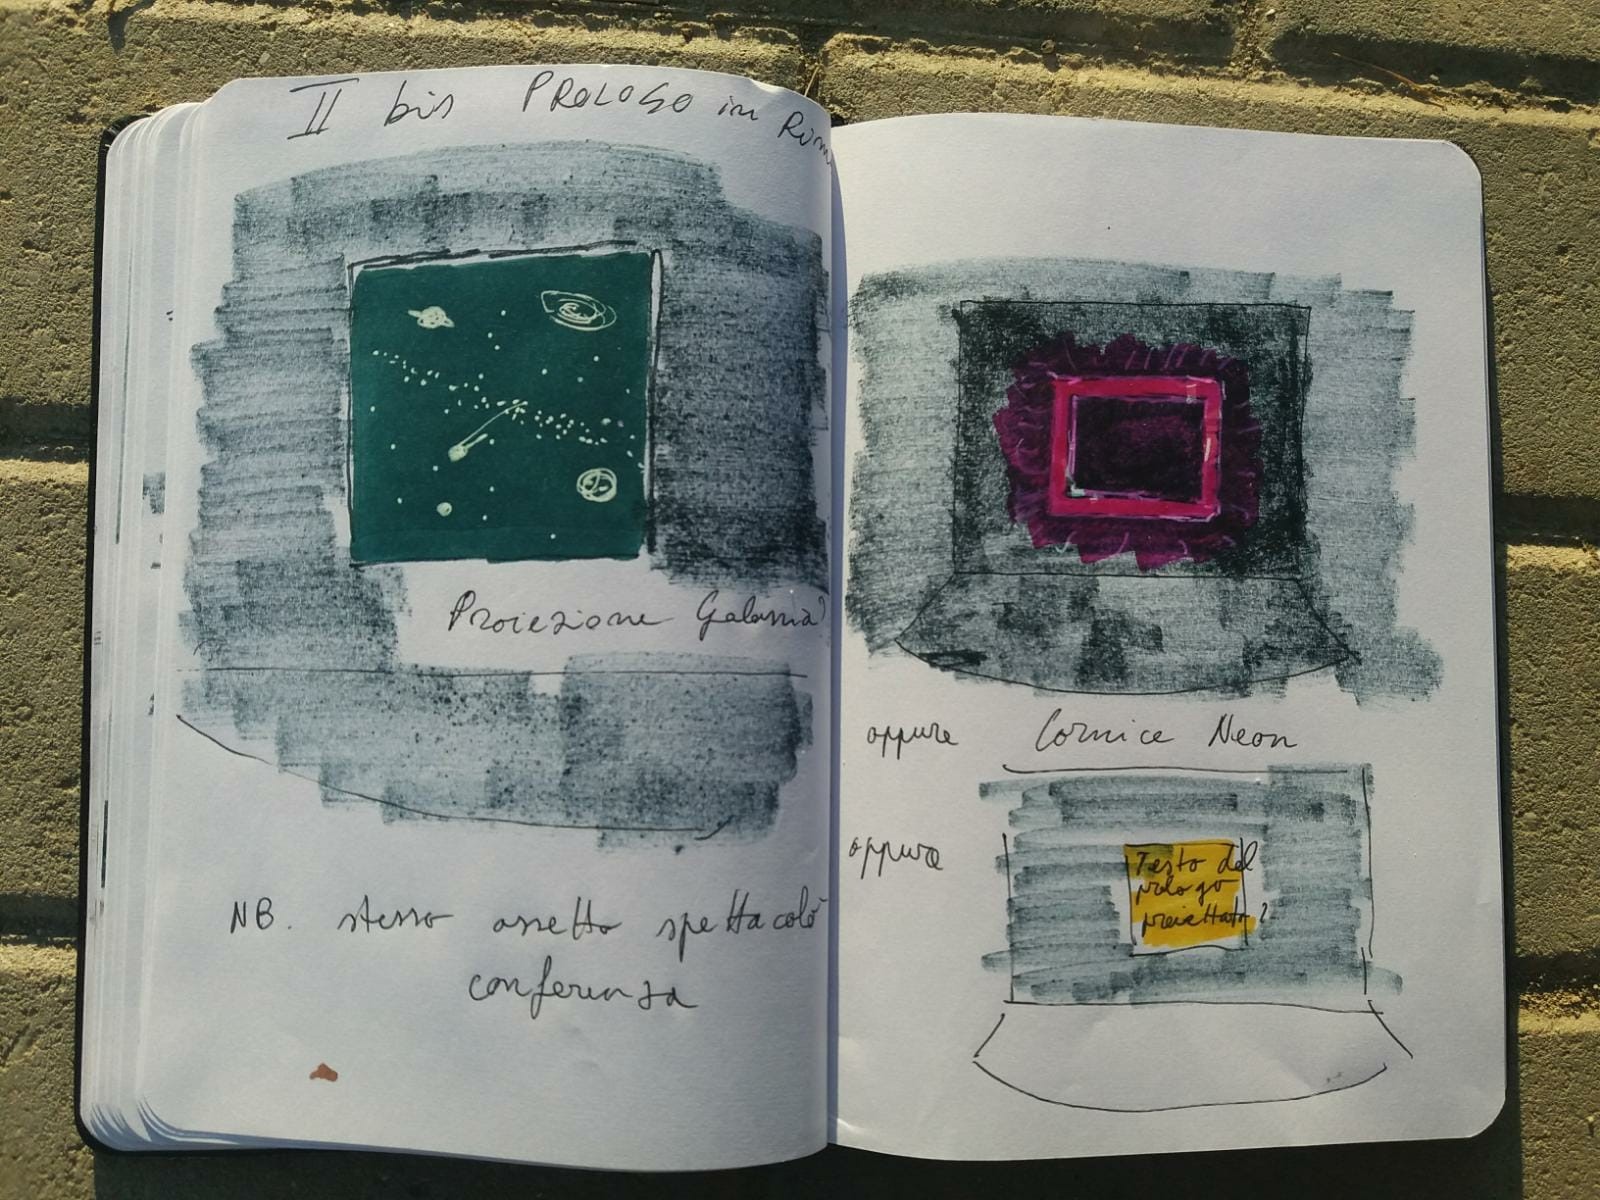 II bis PROLOGO in
Proiezione Galassia?
NB. stesso assetto spettacolo
conferenza
oppure Cornice Neon
oppure
Testo del
prologo
proiettato?